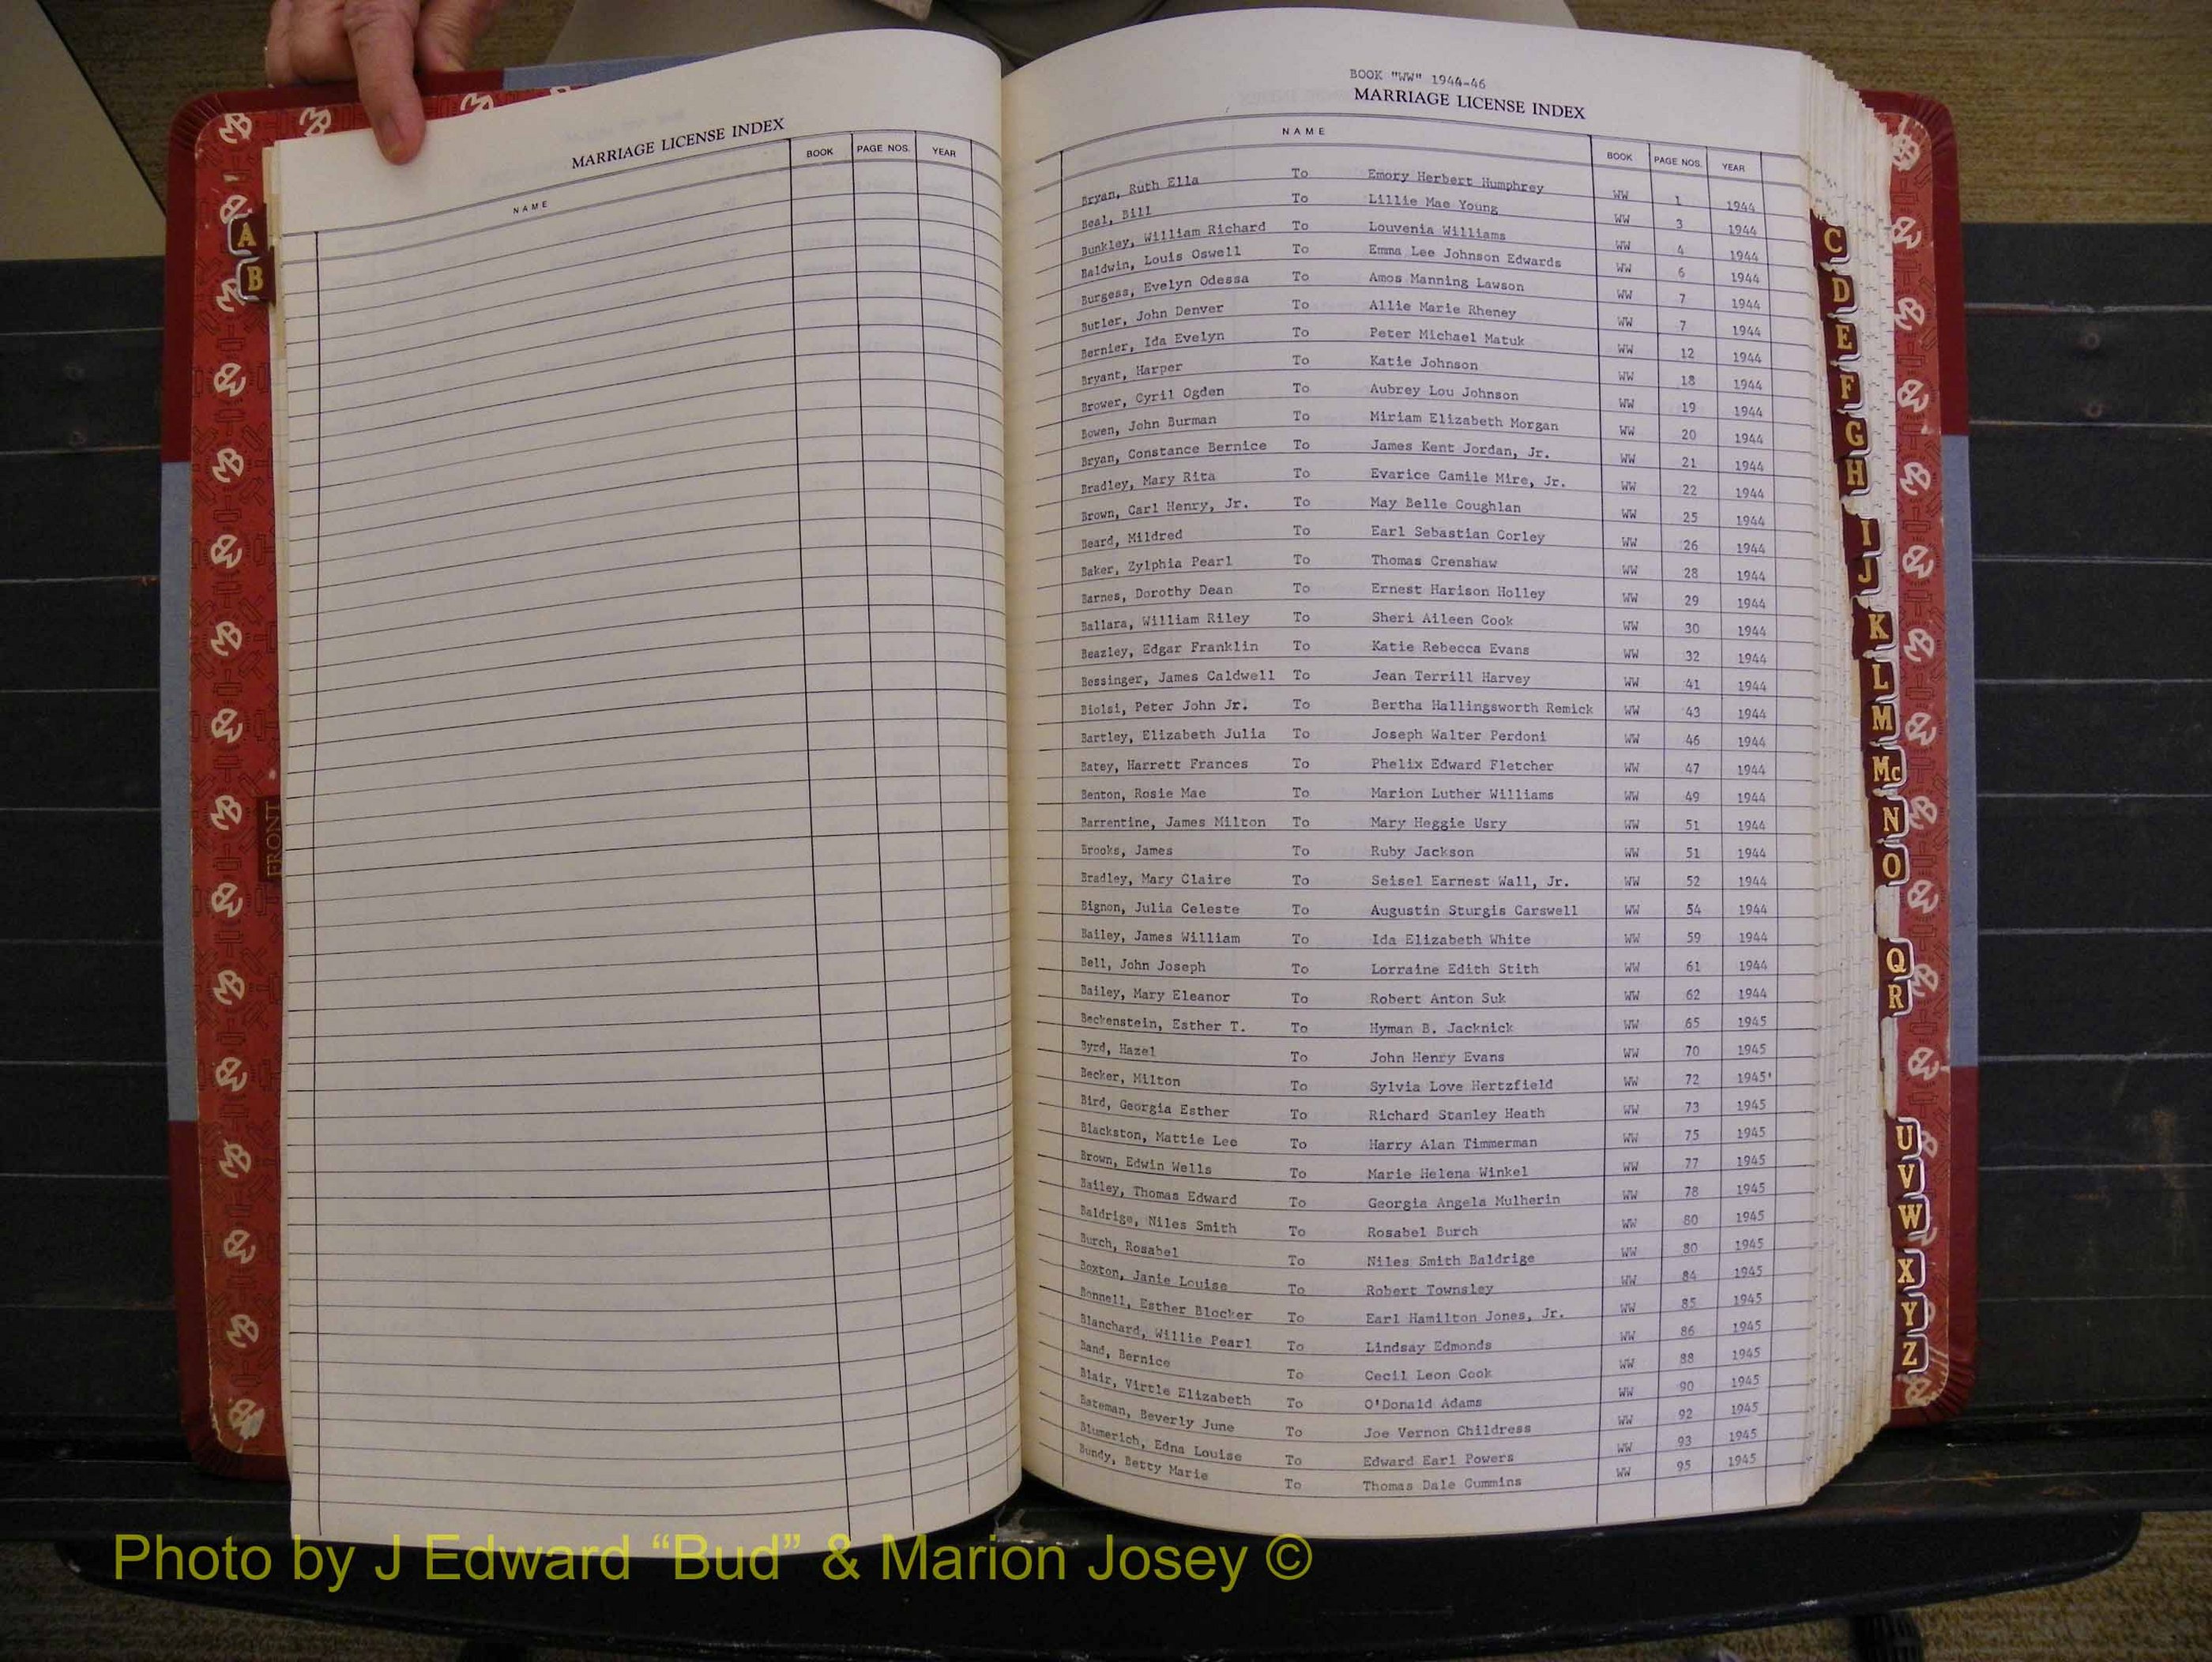 MARRIAGE LICENSE INDEX
NAME BOOK PAGE NOS. YEAR
A
B
FRONT
BOOK "WW" 1944-46
MARRIAGE LICENSE INDEX
NAME BOOK PAGE NOS. YEAR
Bryan, Ruth Ella To Emory Herbert Humphrey WW 1 1944
Beal, Bill To Lillie Mae Young WW 3 1944
Bunkley, William Richard To Louvenia Williams WW 4 1944
Baldwin, Louis Oswell To Emma Lee Johnson Edwards WW 6 1944
Burgess, Evelyn Odessa To Amos Manning Lawson WW 7 1944
Butler, John Denver To Allie Marie Rheney WW 7 1944
Bernier, Ida Evelyn To Peter Michael Matuk WW 12 1944
Bryant, Harper To Katie Johnson WW 18 1944
Brower, Cyril Ogden To Aubrey Lou Johnson WW 19 1944
Bowen, John Burman To Miriam Elizabeth Morgan WW 20 1944
Bryan, Constance Bernice To James Kent Jordan, Jr. WW 21 1944
Bradley, Mary Rita To Evarice Camile Mire, Jr. WW 22 1944
Brown, Carl Henry, Jr. To May Belle Coughlan WW 25 1944
Beard, Mildred To Earl Sebastian Corley WW 26 1944
Baker, Zylphia Pearl To Thomas Crenshaw WW 28 1944
Barnes, Dorothy Dean To Ernest Harison Holley WW 29 1944
Ballara, William Riley To Sheri Aileen Cook WW 30 1944
Beazley, Edgar Franklin To Katie Rebecca Evans WW 32 1944
Bessinger, James Caldwell To Jean Terrill Harvey WW 41 1944
Biolsi, Peter John Jr. To Bertha Hallingsworth Remick WW 43 1944
Bartley, Elizabeth Julia To Joseph Walter Perdoni WW 46 1944
Batey, Harrett Frances To Phelix Edward Fletcher WW 47 1944
Benton, Rosie Mae To Marion Luther Williams WW 49 1944
Barrentine, James Milton To Mary Heggie Usry WW 51 1944
Brooks, James To Ruby Jackson WW 51 1944
Bradley, Mary Claire To Seisel Earnest Wall, Jr. WW 52 1944
Bignon, Julia Celeste To Augustin Sturgis Carswell WW 54 1944
Bailey, James William To Ida Elizabeth White WW 59 1944
Bell, John Joseph To Lorraine Edith Stith WW 61 1944
Bailey, Mary Eleanor To Robert Anton Suk WW 62 1944
Beckenstein, Esther T. To Hyman B. Jacknick WW 65 1945
Byrd, Hazel To John Henry Evans WW 70 1945
Becker, Milton To Sylvia Love Hertzfield WW 72 1945'
Bird, Georgia Esther To Richard Stanley Heath WW 73 1945
Blackston, Mattie Lee To Harry Alan Timmerman WW 75 1945
Brown, Edwin Wells To Marie Helena Winkel WW 77 1945
Bailey, Thomas Edward To Georgia Angela Mulherin WW 78 1945
Baldrige, Niles Smith To Rosabel Burch WW 80 1945
Burch, Rosabel To Niles Smith Baldrige WW 80 1945
Boxton, Janie Louise To Robert Townsley WW 84 1945
Bonnell, Esther Blocker To Earl Hamilton Jones, Jr. WW 85 1945
Blanchard, Willie Pearl To Lindsay Edmonds WW 86 1945
Band, Bernice To Cecil Leon Cook WW 88 1945
Blair, Virtle Elizabeth To O'Donald Adams WW 90 1945
Bateman, Beverly June To Joe Vernon Childress WW 92 1945
Blumerich, Edna Louise To Edward Earl Powers WW 93 1945
Bundy, Betty Marie To Thomas Dale Gummins WW 95 1945
C
D
E
F
G
H
I
J
K
L
M
Mc
N
O
Q
R
U
V
W
X
Y
Z
Photo by J Edward “Bud” & Marion Josey ©